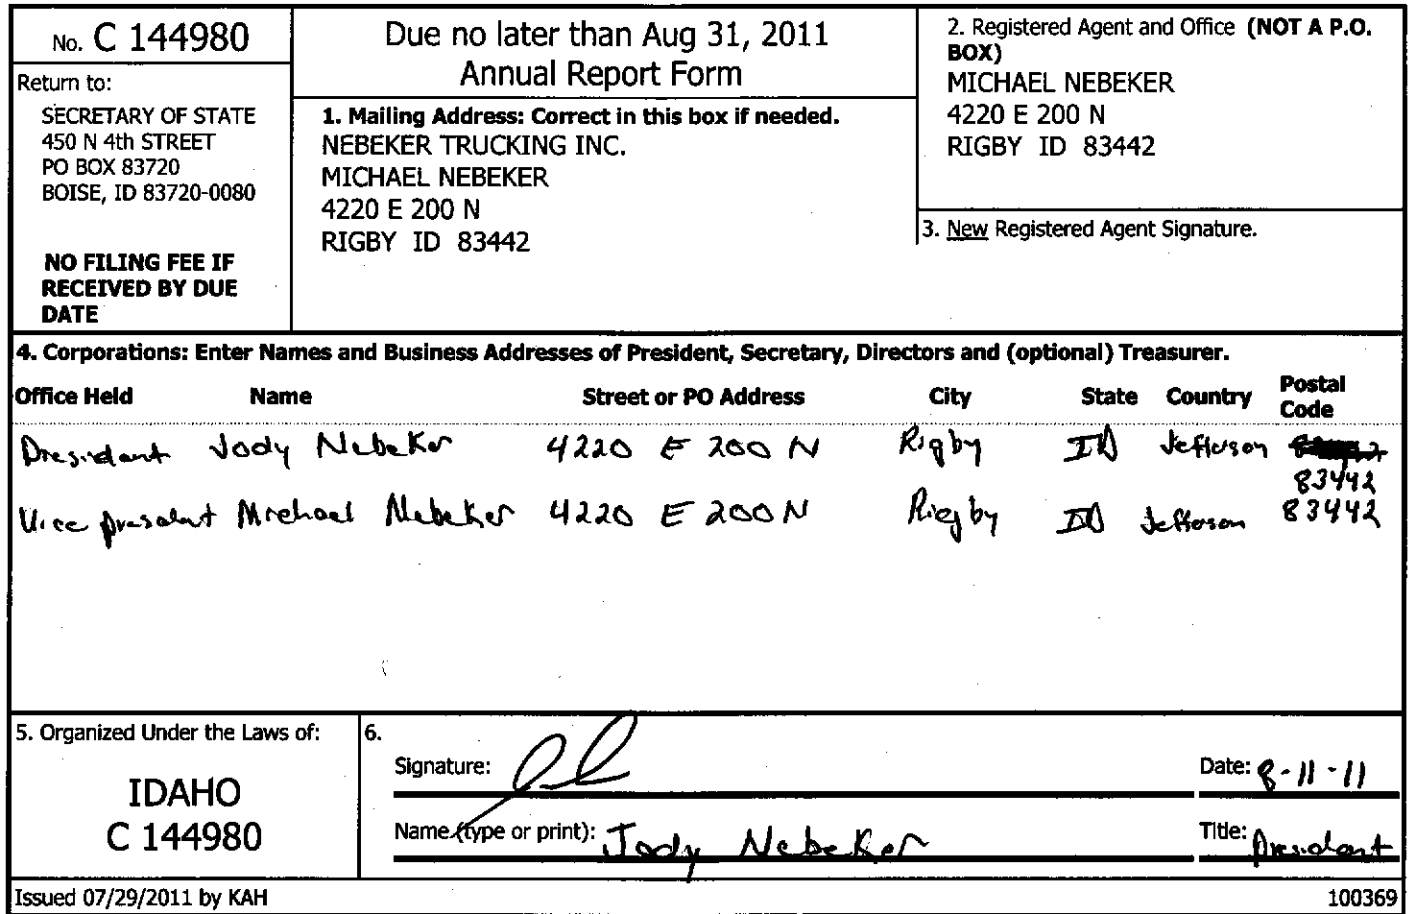 No. C 144980
Return to:
SECRETARY OF STATE
450 N 4th STREET
PO BOX 83720
BOISE, ID 83720-0080
NO FILING FEE IF
RECEIVED BY DUE
DATE
Due no later than Aug 31, 2011
Annual Report Form
1. Mailing Address: Correct in this box if needed.
NEBEKER TRUCKING INC.
MICHAEL NEBEKER
4220 E 200 N
RIGBY ID 83442
2. Registered Agent and Office (NOT A P.O.
BOX)
MICHAEL NEBEKER
4220 E 200 N
RIGBY ID 83442
3. New Registered Agent Signature.
4. Corporations: Enter Names and Business Addresses of President, Secretary, Directors and (optional) Treasurer.
Office Held Name Street or PO Address City State Country Postal Code
Presidant Jody Nebeker 4220 E 200 N Rigby ID Jefferson
83442
Vice president Michael Nebeker 4220 E 200 N Rigby ID Jefferson 83442
5. Organized Under the Laws of:
IDAHO
C 144980
6.
Signature: Date: 8-11-11
Name (type or print): Jody Nebeker Title: President
Issued 07/29/2011 by KAH 100369